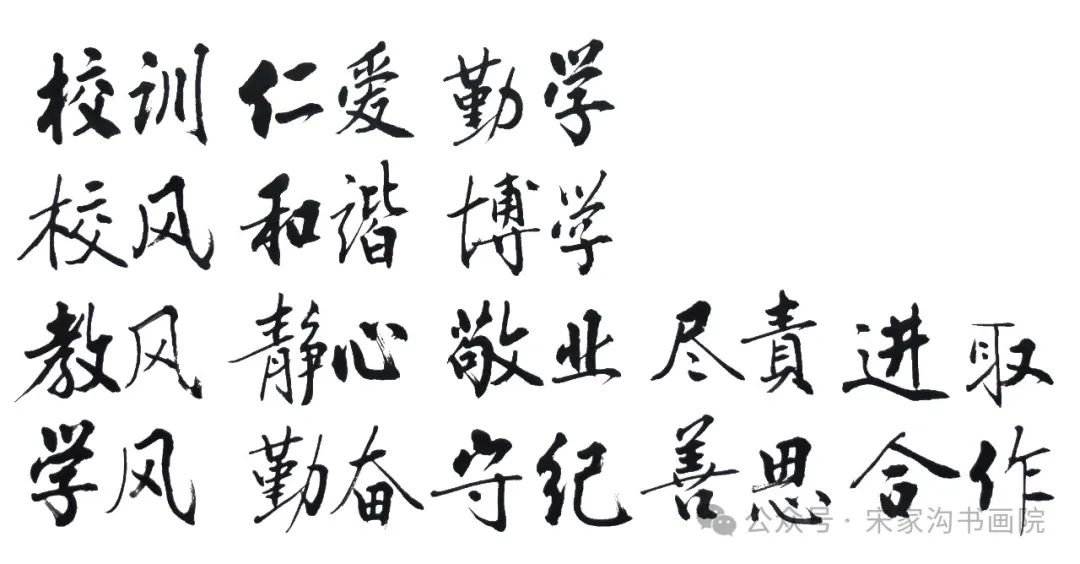 校训 仁爱 勤学
校风 和谐 博学
教风 静心 敬业 尽責 进取
学风 勤奋 守纪 善思 合作
公众号 · 宋家沟书画院